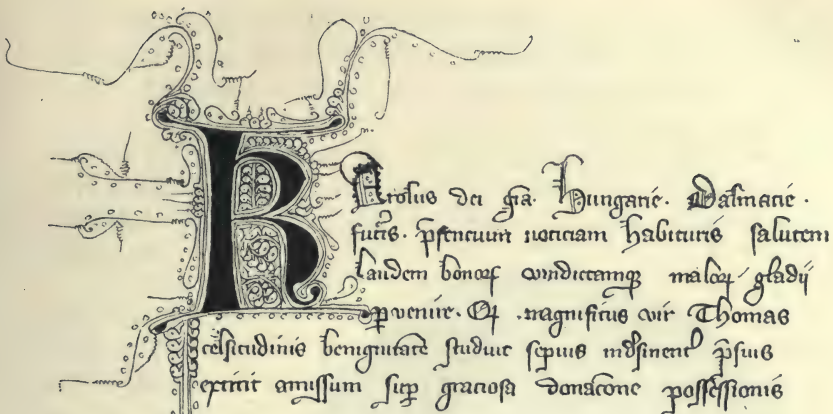 Karolus dei gra. Hungarie. Dalmatie.
futis. psencium noticiam habituris salutem
laudem bonorꝝ vindictamqꝫ malorꝝ gladii
ꝑvenire. Qꝫ magnificus vir Thomas
celsitudinis benignitate studuit sepius indsinent psius
extitit amissum sicꝑ graciosa donacone possessionis